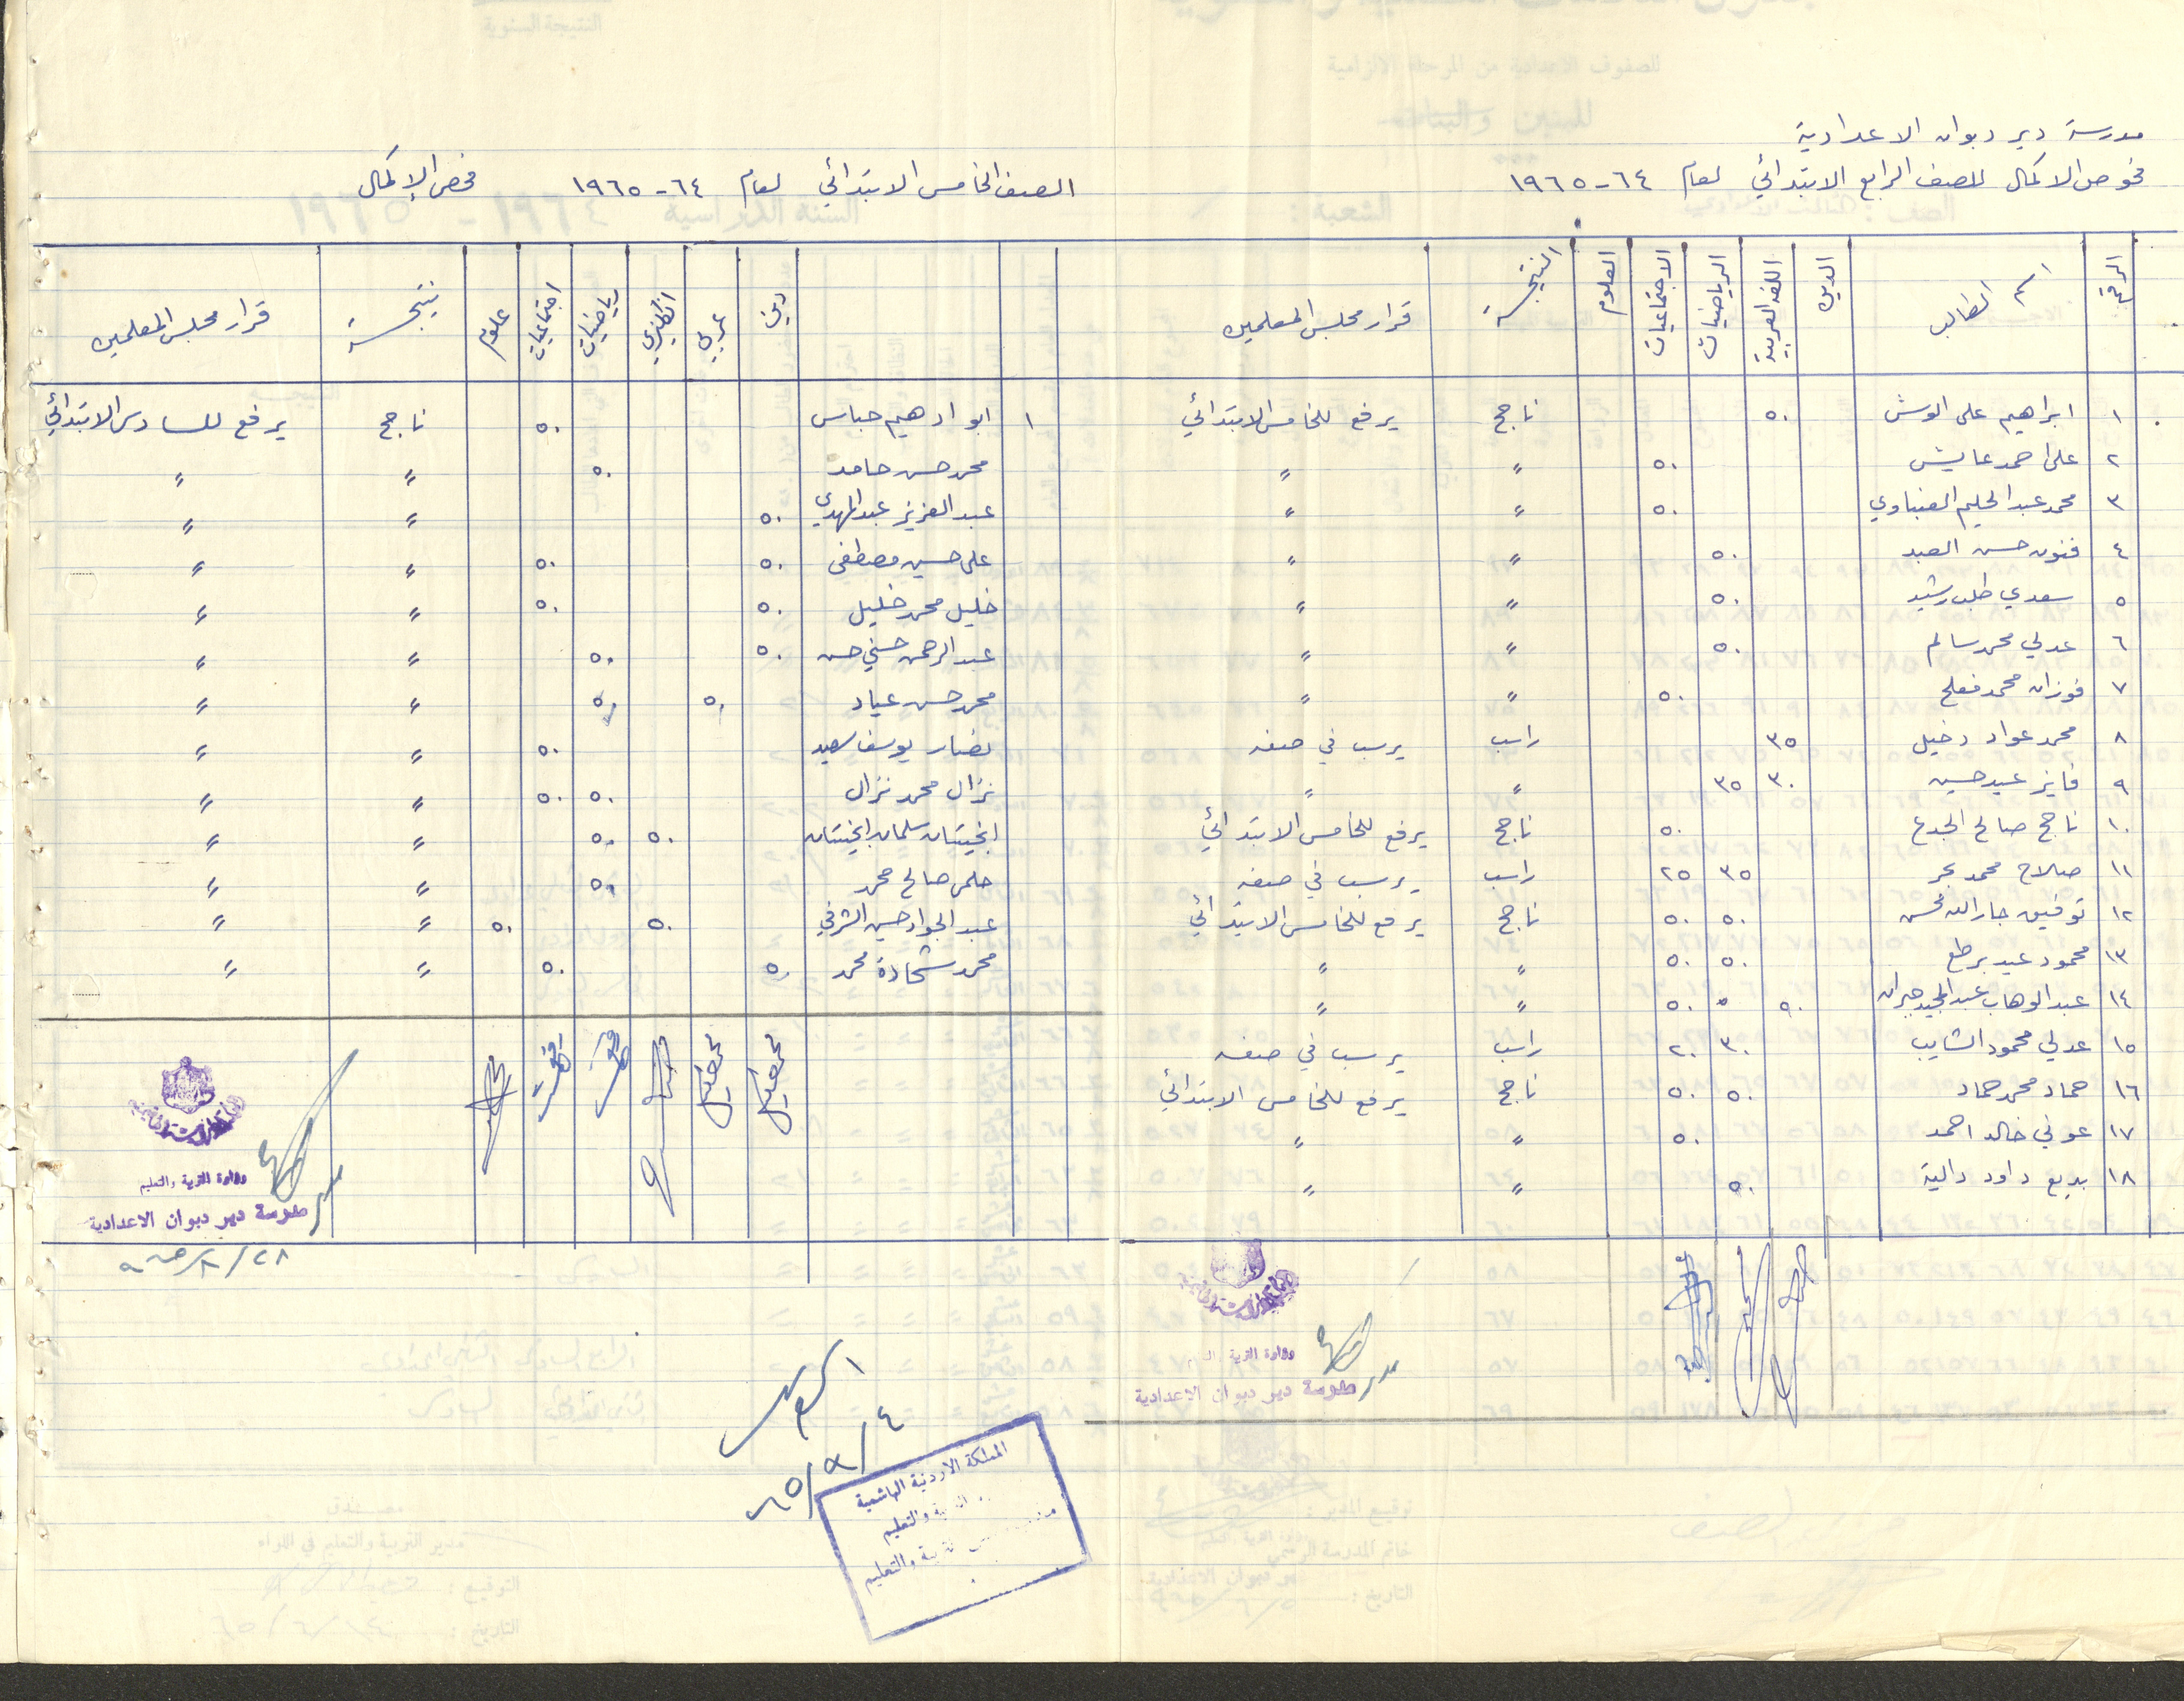 مدرسة دير دبوان الاعدادية
فحوص الاكمال للصف الرابع الابتدائي لعام ٦٤-١٩٦٥
الرقم اسم الطالب الدين اللغة العربية الرياضيات الاجتماعيات العلوم النتيجة قرار مجلس المعلمين
١ ابراهيم علي الوش ٥٠ ناجح يرفع للخامس الابتدائي
٢ علي احمد عايش ٥٠ " "
٣ محمد عبد الحليم العنباوي ٥٠ " "
٤ حسن العبد ٥٠ " "
٥ سعدي طلب رشيد ٥٠ " "
٦ عدلي محمد سالم ٥٠ " "
٧ فوزان محمد مفلح ٥٠ " "
٨ محمد عواد دخيل ٣٥ راسب يرسب في صفه
٩ فايز عيد حسين ٣٠ ٣٥ " "
١٠ ناجح صالح الجدع ٥٠ ناجح يرفع للخامس الابتدائي
١١ صلاح محمد بحر ٣٥ ٢٥ راسب يرسب في صفه
١٢ توفيق جار الله محسن ٥٠ ٥٠ ناجح يرفع للخامس الابتدائي
١٣ محمود عيد برطع ٥٠ ٥٠ " "
١٤ عبد الوهاب عبد المجيد جبران ٥٠ ٥٠ " "
١٥ عدلي محمود الشايب ٣٠ ٢٠ راسب يرسب في صفه
١٦ حماد محمد حماد ٥٠ ٥٠ ناجح يرفع للخامس الابتدائي
١٧ عوني خالد احمد ٥٠ " "
١٨ بديع داود دالية ٥٠ " "
وزارة التربية والتعليم
مدرسة دير دبوان الاعدادية
الصف الخامس الابتدائي لعام ٦٤-١٩٦٥ فحص الإكمال
دين عربي انكليزي رياضيات اجتماعيات علوم نتيجة قرار مجلس المعلمين
١ ابو ادهيم حباس ٥٠ ناجح يرفع للسادس الابتدائي
محمد حسن حامد ٥٠ " "
عبد العزيز عبد المهدي ٥٠ " "
علي حسين مصطفى ٥٠ ٥٠ " "
خليل محمد خليل ٥٠ ٥٠ " "
عبد الرحمن حسني حسن ٥٠ ٥٠ " "
محمد حسن عياد ٥٠ ٥٠ " "
نضار يوسف سعيد ٥٠ " "
نزال محمد نزال ٥٠ ٥٠ " "
سلمان ٥٠ ٥٠ " "
حلمي صالح محمد ٥٠ " "
عبد الجواد حسين الشرفي ٥٠ ٥٠ " "
محمد شحادة محمد ٥٠ ٥٠ " "
وزارة التربية والتعليم
مدير مدرسة دير دبوان الاعدادية
٢٨/٨/٩٦٥
٤/٩/٦٥
المملكة الاردنية الهاشمية
التربية والتعليم
التربية والتعليم